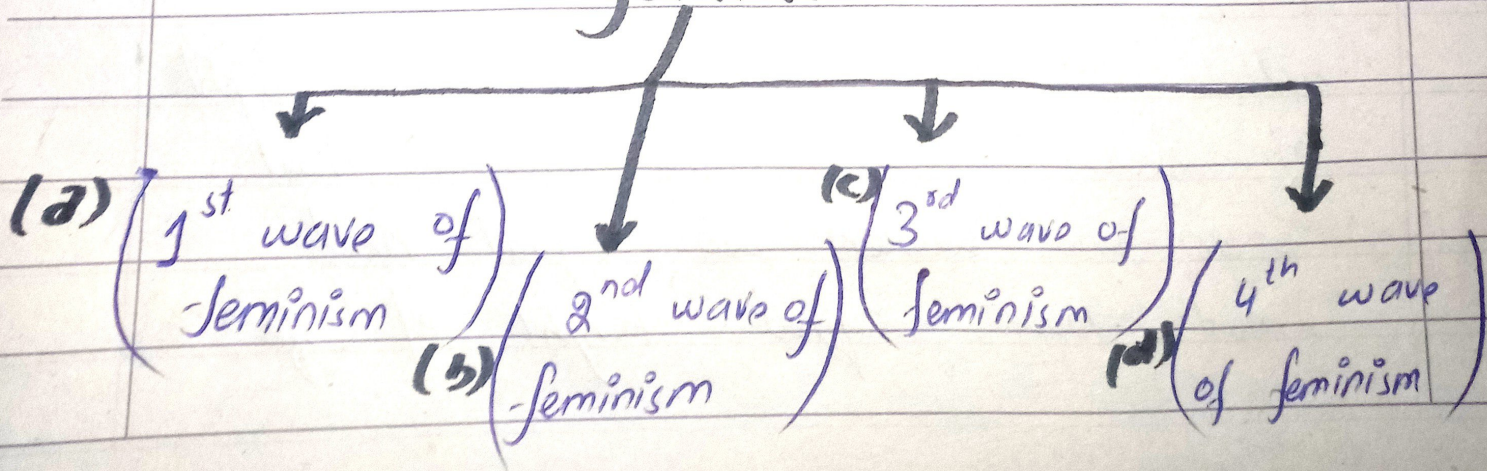 (a) 1st wave of
feminism
(b) 2nd wave of
feminism
(c) 3rd wave of
feminism
(d) 4th wave
of feminism